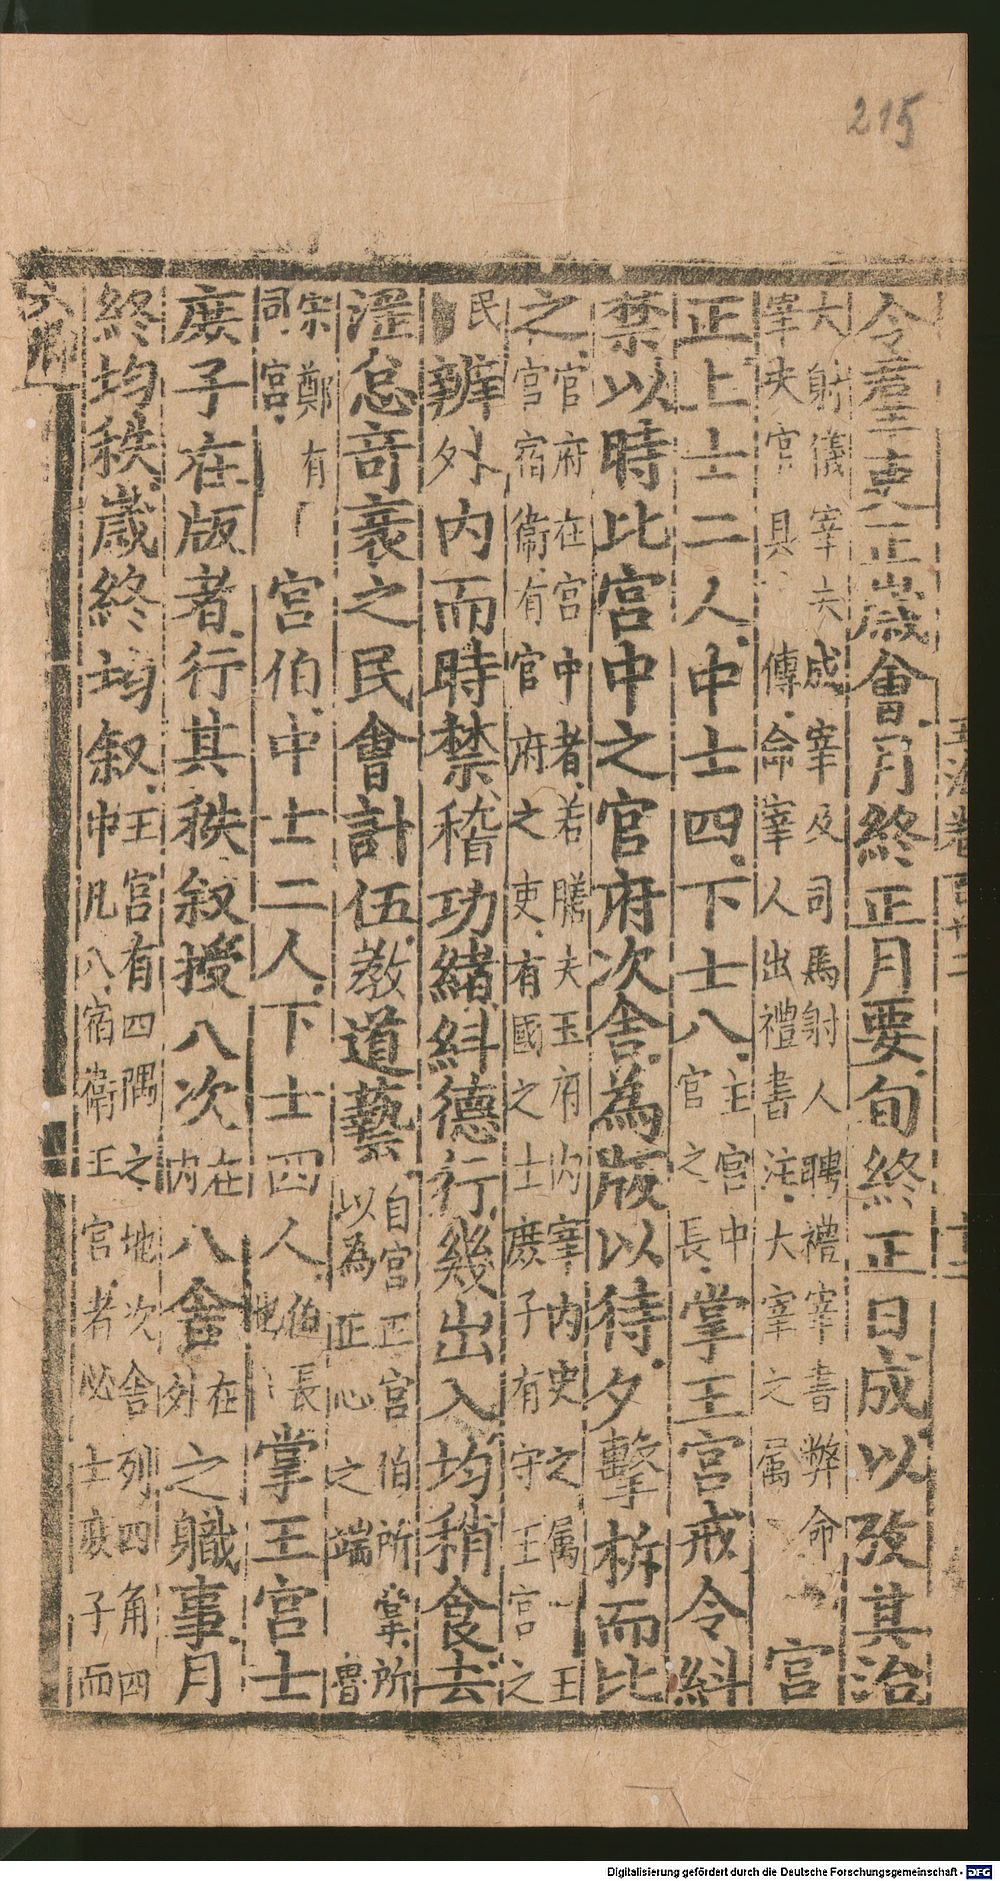 215
令羣吏正歲會月終正月要旬終正日成以攷其治
大射儀宰夫戒宰及司馬射人聘禮宰書幣命
宰夫官具 傳命宰人出禮書注大宰之屬 宮
正上士二人中士四下士八主宮中官之長掌王宮戒令糾
禁以時比宮中之官府次舍為版以待夕擊柝而比
之官府在宮中者若膳夫玉府内宰内史之属 王
宮宿衛有官府之吏有國之士庶子有守王宮之
民 辨外内而時禁稽功緒糾德行幾出入均稍食去
淫怠竒衺之民會計伍教道藝自宮正宮伯所掌所
以為正心之端 魯
宋鄭有
司宮 宮伯中士二人下士四人伯長也 掌王宮士
庶子在版者行其秩叙授八次在内八舍在外之職事月
終均秩歲終均叙王宮有四隅之地次舍列四角四
中凡八宿衛王宮者必士庶子而
六卿
玉海卷百廿二
Digitalisierung gefördert durch die Deutsche Forschungsgemeinschaft - DFG